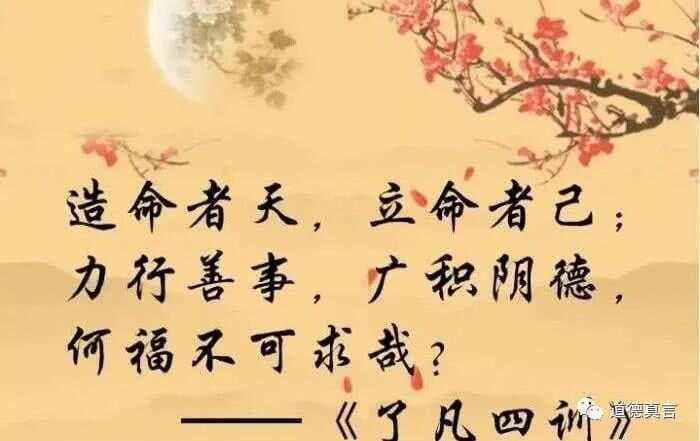 造命者天，立命者己；
力行善事，广积阴德，
何福不可求哉？
——《了凡四训》
道德真言